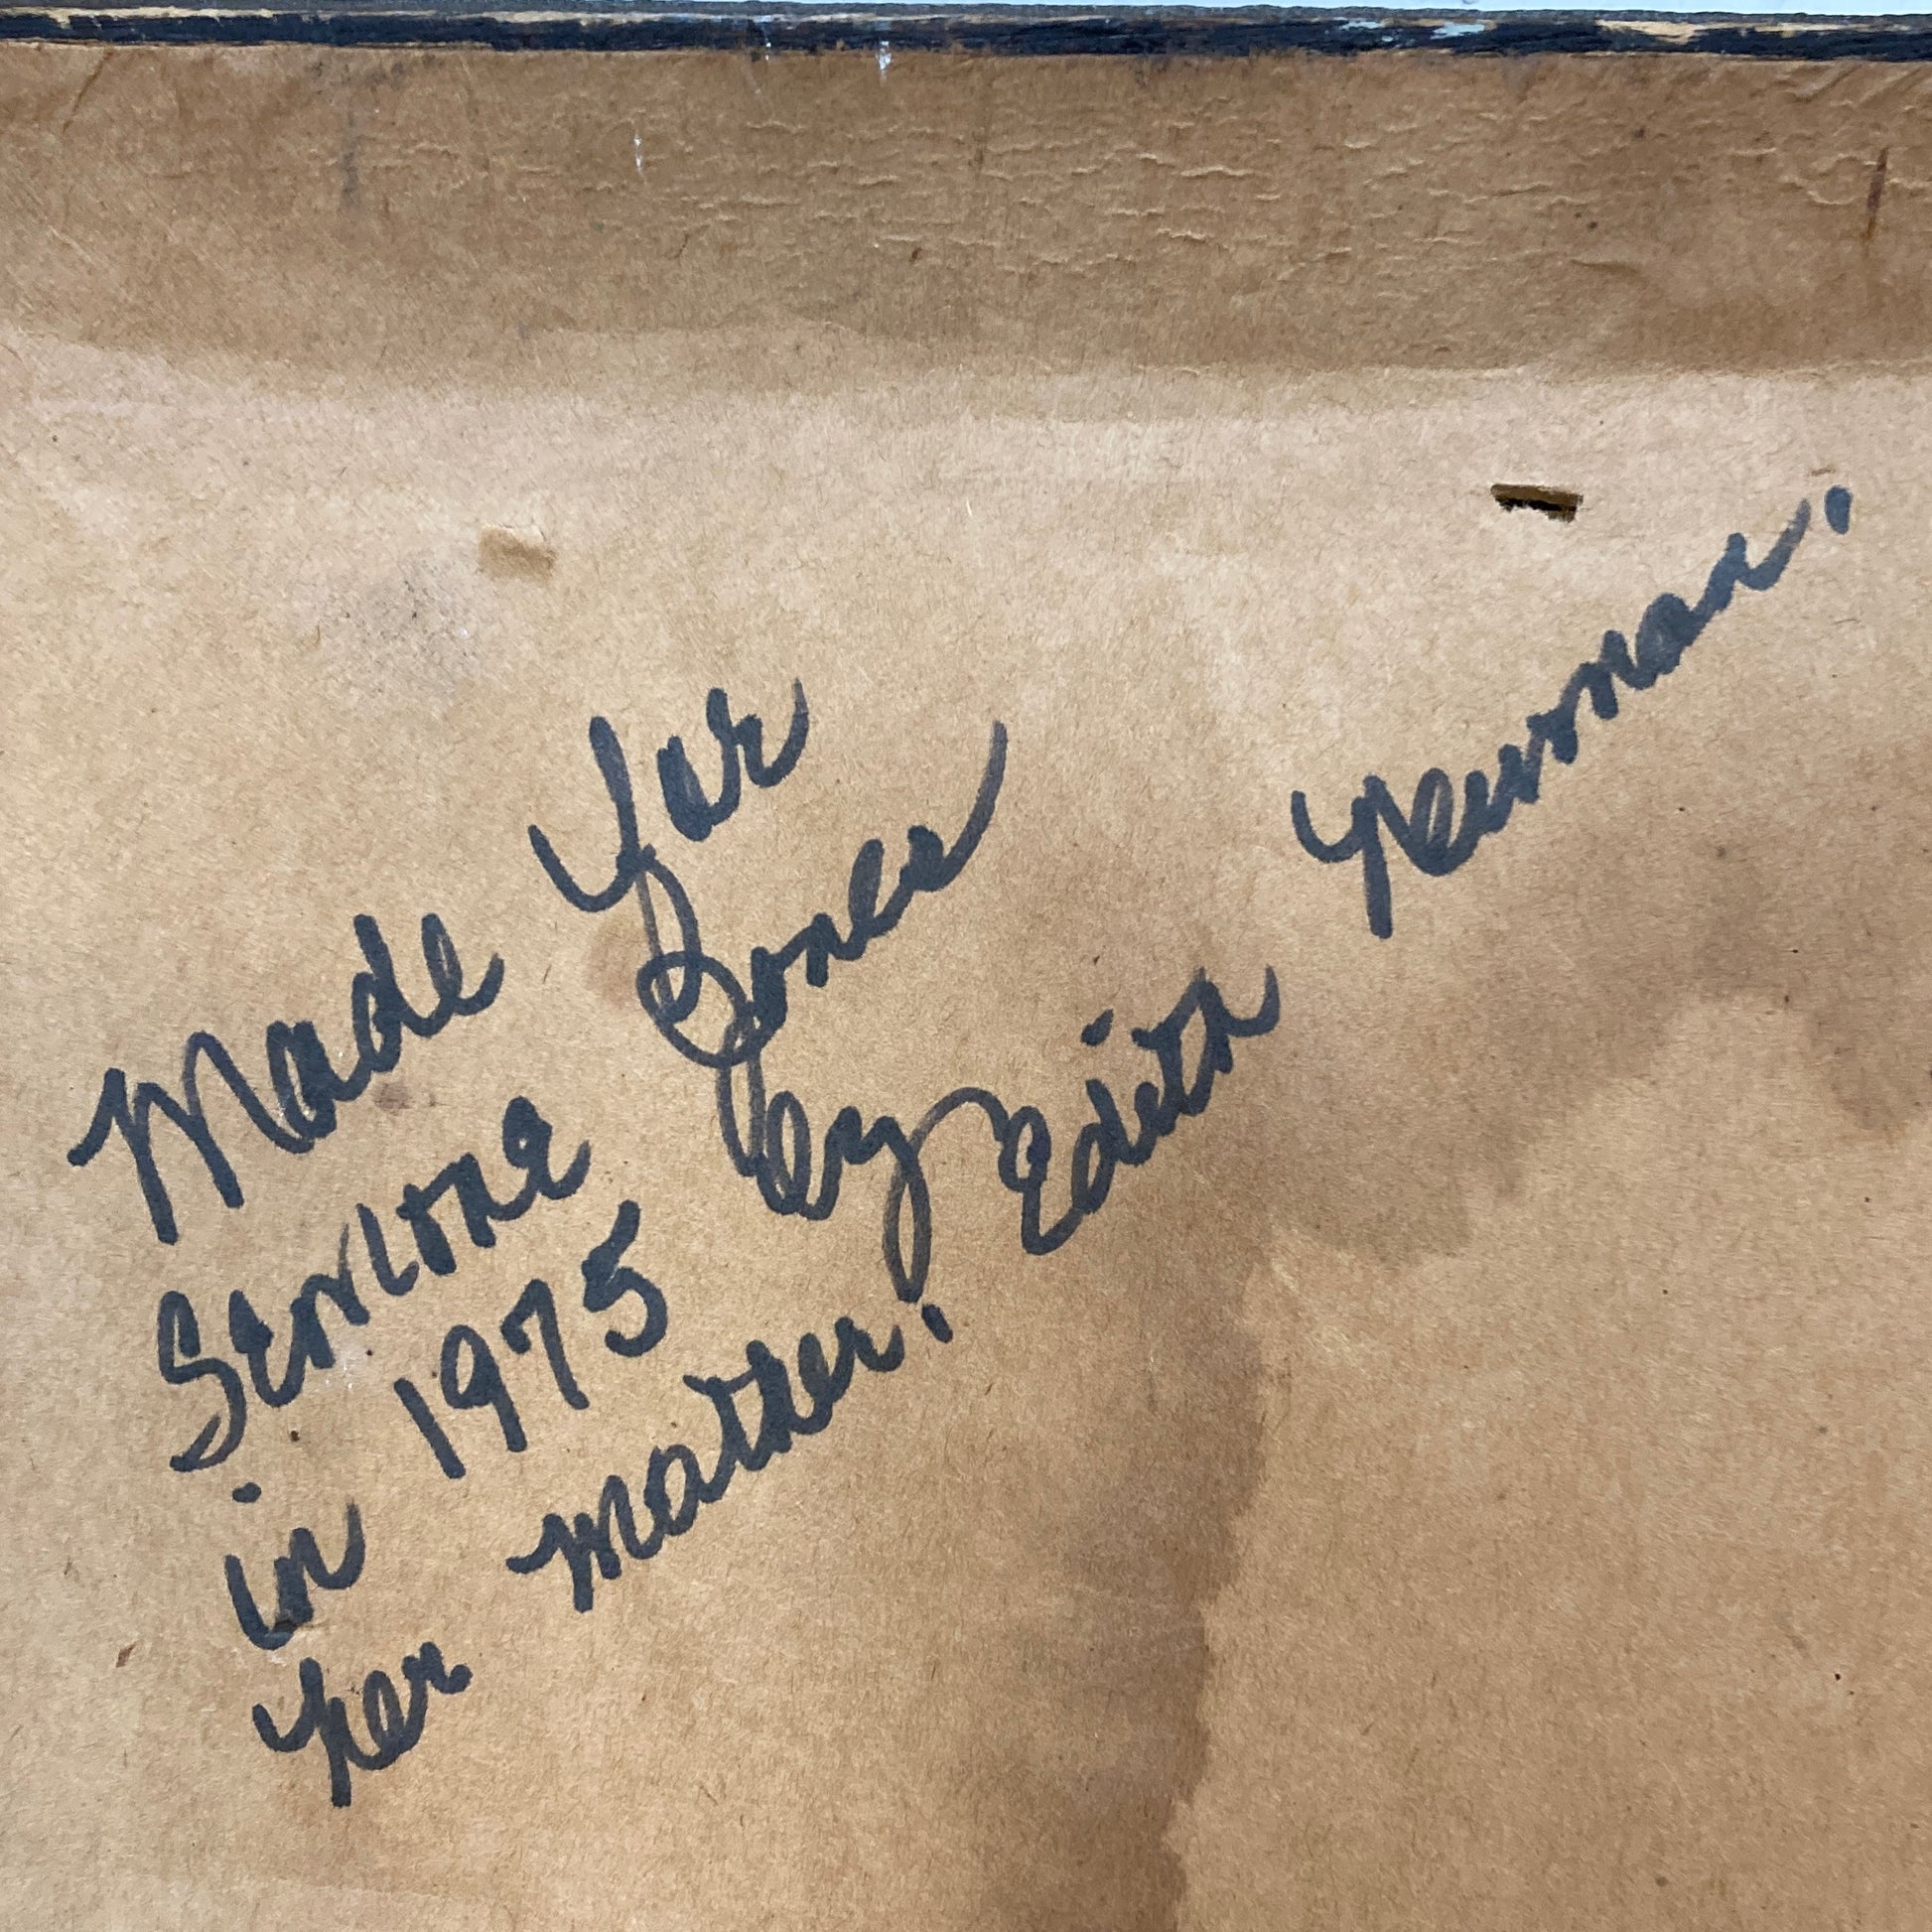 Made for
Semone Jones
in 1975 by Edith Newman.
her mother.